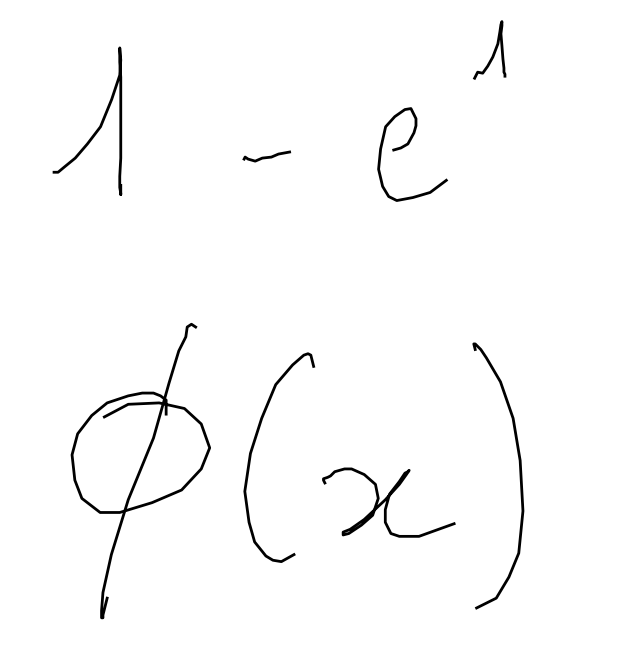 1 - e¹
ϕ(x)